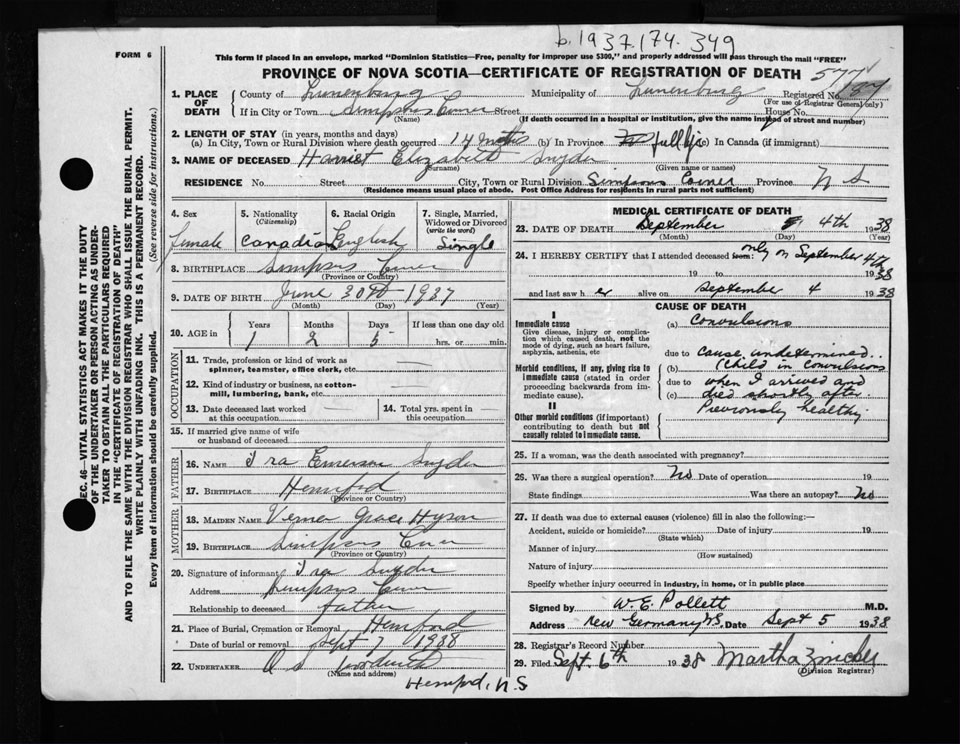 b.1937.174.349
FORM 6
This form if placed in an envelope, marked "Dominion Statistics—Free, penalty for improper use $300," and properly addressed will pass through the mail "FREE"
PROVINCE OF NOVA SCOTIA—CERTIFICATE OF REGISTRATION OF DEATH
577
1. PLACE OF DEATH
County of Lunenburg Municipality of Lunenburg Registered No. 87
(For use of Registrar General only)
If in City or Town Simpsons Corner Street House No.
(Name) (If death occurred in a hospital or institution, give the name instead of street and number)
2. LENGTH OF STAY (in years, months and days)
(a) In City, Town or Rural Division where death occurred 14 mths (b) In Province full life (c) In Canada (if immigrant)
3. NAME OF DECEASED Harriet Elizabeth Snyder
(Surname) (Given name or names)
RESIDENCE No. Street City, Town or Rural Division Simpsons Corner Province N S
(Residence means usual place of abode. Post Office Address for residents in rural parts not sufficient)
4. Sex
female
5. Nationality
(Citizenship)
Canadian
6. Racial Origin
English
7. Single, Married, Widowed or Divorced
(write the word)
Single
8. BIRTHPLACE Simpsons Corner
(Province or Country)
9. DATE OF BIRTH June 30th 1937
(Month) (Day) (Year)
10. AGE in
Years Months Days If less than one day old
1 2 5 hrs. or min.
OCCUPATION
11. Trade, profession or kind of work as spinner, teamster, office clerk, etc.
12. Kind of industry or business, as cotton-mill, lumbering, bank, etc.
13. Date deceased last worked at this occupation
14. Total yrs. spent in this occupation
15. If married give name of wife or husband of deceased
FATHER
16. NAME Ira Emerson Snyder
17. BIRTHPLACE Hemford
(Province or Country)
MOTHER
18. MAIDEN NAME Verna Grace Hyson
19. BIRTHPLACE Simpsons Corner
(Province or Country)
20. Signature of informant Ira Snyder
Address Simpsons Corner
Relationship to deceased father
21. Place of Burial, Cremation or Removal Hemford
Date of burial or removal Sept 7 1938
22. UNDERTAKER
(Name and address)
Hemford, N.S
MEDICAL CERTIFICATE OF DEATH
23. DATE OF DEATH September 4th 1938
(Month) (Day) (Year)
24. I HEREBY CERTIFY that I attended deceased from: only on September 4th
19 to 1938
and last saw h er alive on September 4 1938
CAUSE OF DEATH
I
Immediate cause
Give disease, injury or complication which caused death, not the mode of dying, such as heart failure, asphyxia, asthenia, etc
Morbid conditions, if any, giving rise to immediate cause (stated in order proceeding backwards from immediate cause).
II
Other morbid conditions (if important) contributing to death but not causally related to immediate cause.
(a) Convulsions
due to Cause undetermined..
(b) (Child in convulsions
due to when I arrived and
(c) died shortly after.
Previously healthy
25. If a woman, was the death associated with pregnancy?
26. Was there a surgical operation? No Date of operation 19
State findings Was there an autopsy? No
27. If death was due to external causes (violence) fill in also the following:—
Accident, suicide or homicide? Date of injury 19
(State which)
Manner of injury
(How sustained)
Nature of injury
Specify whether injury occurred in industry, in home, or in public place
Signed by W. E. Pollett M.D.
Address New Germany N.S. Date Sept 5 1938
28. Registrar's Record Number
29. Filed Sept. 6th 1938 Martha Zwicker
(Division Registrar)
SEC. 46—VITAL STATISTICS ACT MAKES IT THE DUTY
OF THE UNDERTAKER OR PERSON ACTING AS UNDER-
TAKER TO OBTAIN ALL THE PARTICULARS REQUIRED
IN THE "CERTIFICATE OF REGISTRATION OF DEATH"
AND TO FILE THE SAME WITH THE DIVISION REGISTRAR WHO SHALL ISSUE THE BURIAL PERMIT.
WRITE PLAINLY WITH UNFADING INK. THIS IS A PERMANENT RECORD.
Every item of information should be carefully supplied. (See reverse side for instructions.)